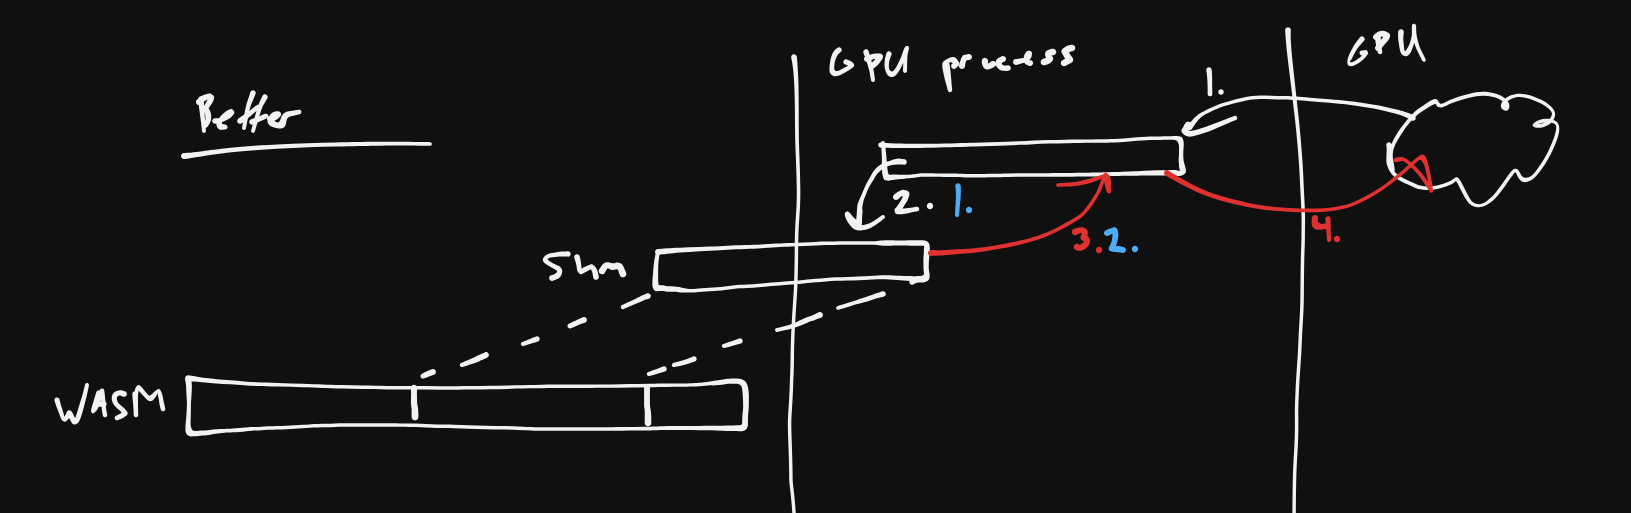 Better
GPU process
GPU
1.
2. 1.
3. 2.
4.
Shm
WASM